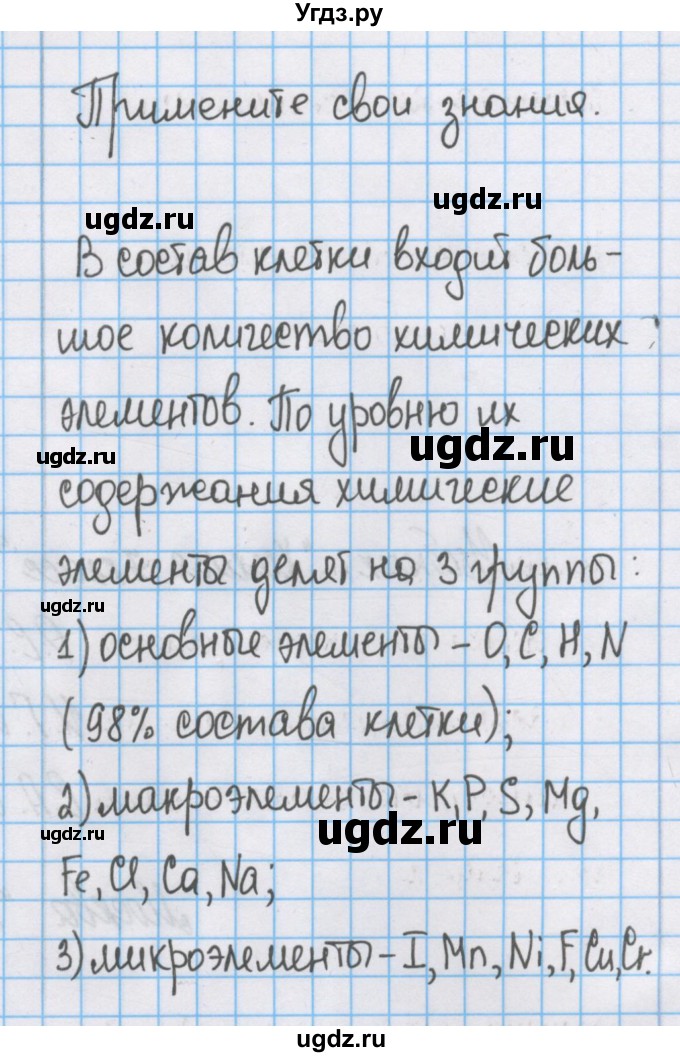 Угдз.ру
Примените свои знания.
ugdz.ru
ugdz.ru
В состав клетки входит боль-
шое количество химических
элементов. По уровню их
ugdz.ru
ugdz.ru
содержания химические
элементы делят на 3 группы:
1) основные элементы – O, C, H, N
(98% состава клетки);
2) макроэлементы – K, P, S, Mg,
ugdz.ru
Fe, Cl, Ca, Na;
3) микроэлементы – I, Mn, Ni, F, Cu, Cr.
ugdz.ru